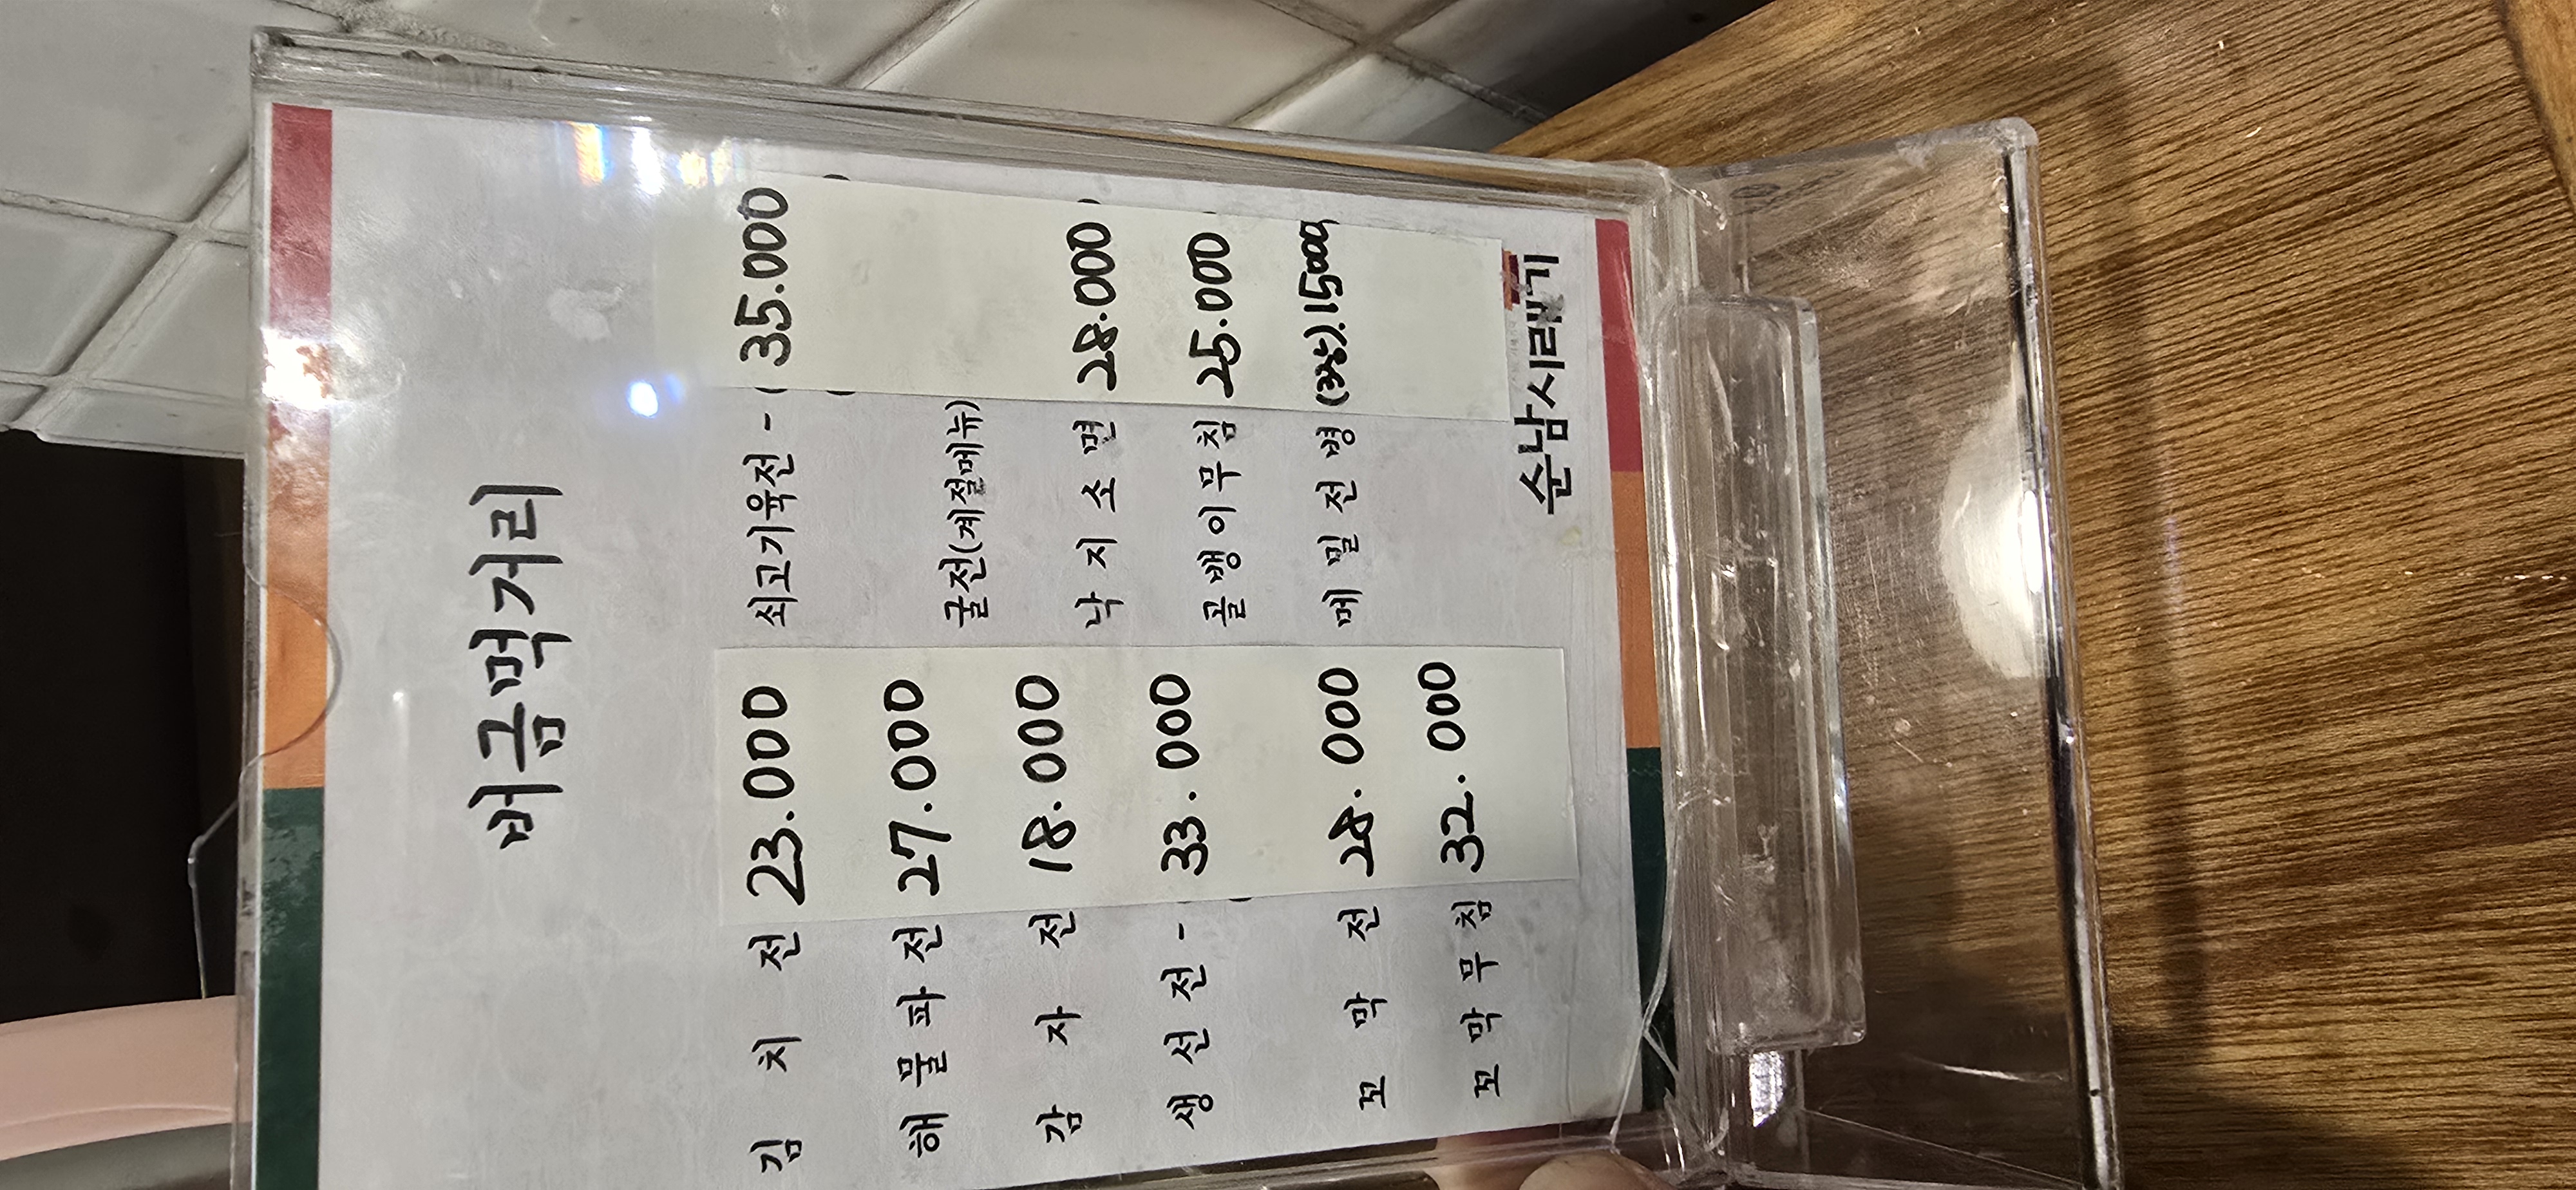 버금먹거리
김 치 전 23.000
해 물 파 전 27.000
감 자 전 18.000
생 선 전 - 33.000
꼬 막 전 28.000
꼬 막 무 침 32.000
쇠고기육전 - 35.000
굴전(계절메뉴)
낙 지 소 면 28.000
골 뱅 이 무 침 25.000
메 밀 전 병 15000
순남시래기